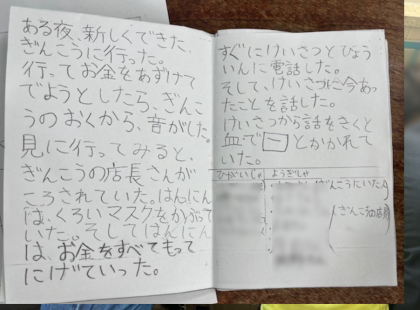 ある夜、新しくできた、
ぎんこうに行った。
行ってお金をあずけて
でようとしたら、ぎんこ
うのおくから、音がした。
見に行ってみると、
ぎんこうの店長さんが
ころされていた。はんにん
は、くろいマスクをかぶって
いた。そしてはんにん
は、お金をすべてもって
にげていった。
すぐにけいさつとびょう
いんに電話した。
そして、けいさつに今あっ
たことを話した。
けいさつから話をきくと
血で「一」とかかれて
いた。
ひがいしゃ ようぎしゃ
ぎんこうにいた人